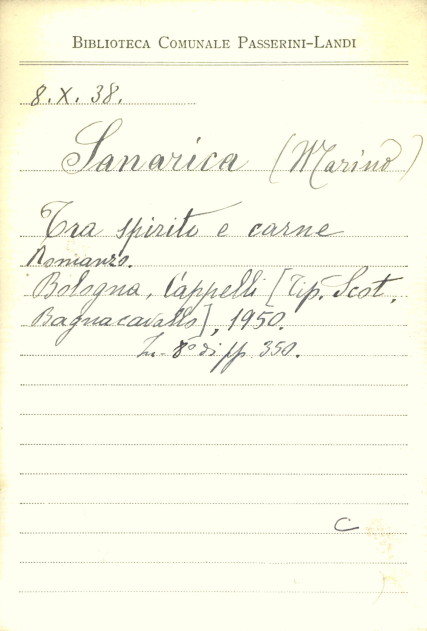 BIBLIOTECA COMUNALE PASSERINI-LANDI
8.X.38.
Sanarica (Marino)
Tra spirito e carne
Romanzo.
Bologna, Cappelli [Tip. Scot.
Bagnacavallo], 1950.
In-8° di pp. 350.
C